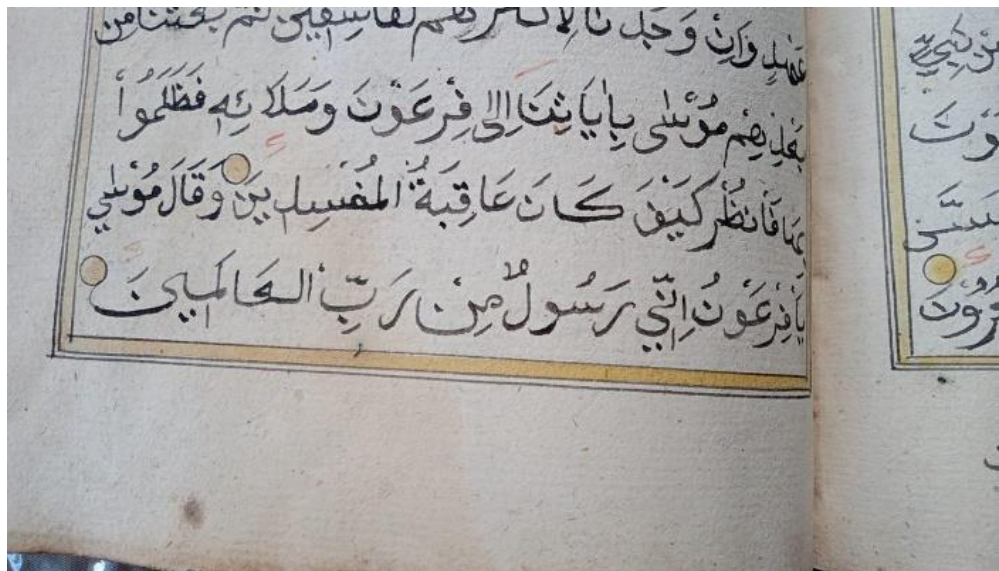 عَهْدٍ وَاِنْ وَجَدْنَا اَكْثَرَهُمْ لَفَاسِقِينَ ثُمَّ بَعَثْنَا مِنْ
بَعْدِهِمْ مُوسٰى بِاٰيَاتِنَا اِلٰى فِرْعَوْنَ وَمَلَائِهِ فَظَلَمُوا
بِهَا فَانْظُرْ كَيْفَ كَانَ عَاقِبَةُ الْمُفْسِدِينَ وَقَالَ مُوسٰى
يَافِرْعَوْنُ اِنِّي رَسُولٌ مِنْ رَبِّ الْعَالَمِينَ